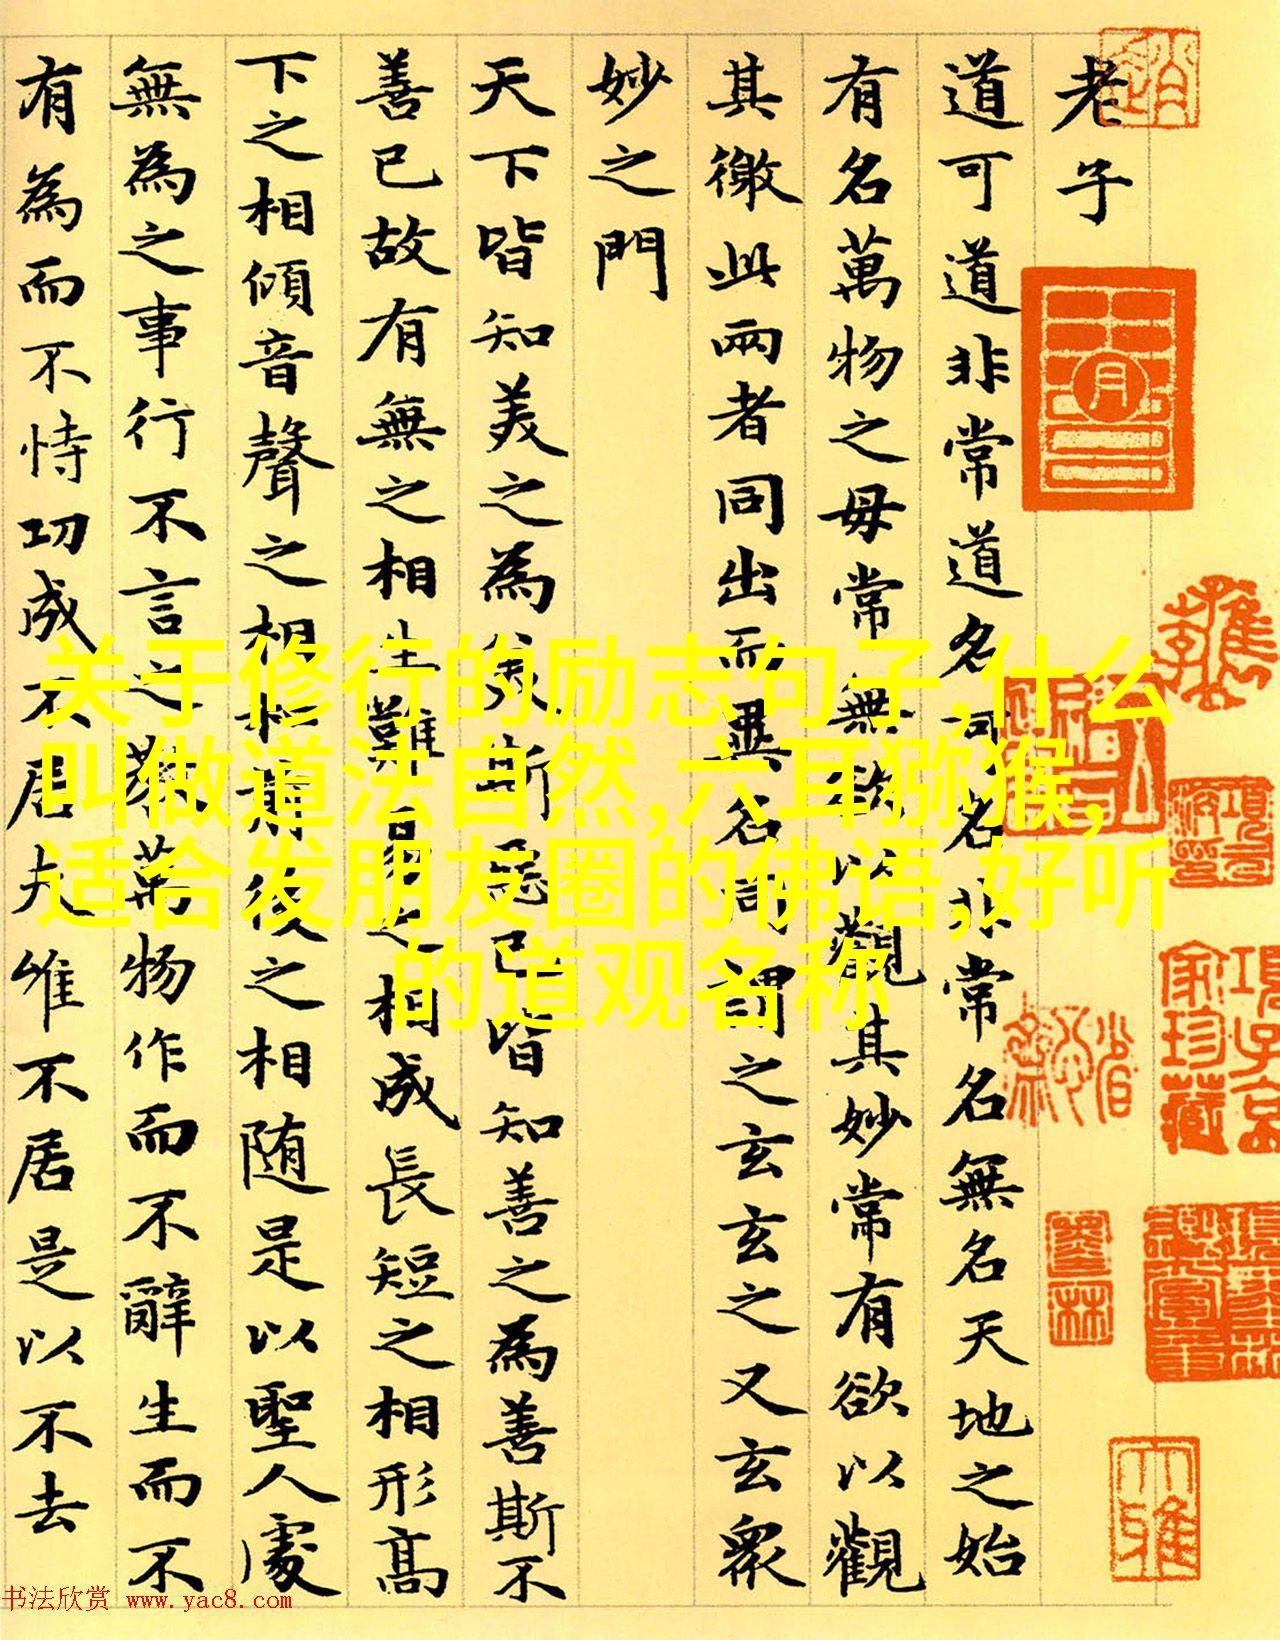 老子
道可道非常道名可名非常名無名天地之始
有名萬物之母常無欲以觀其妙常有欲以觀
其徼此兩者同出而異名同謂之玄玄之又玄眾
妙之門
天下皆知美之為美斯惡已皆知善之為善斯不
善已故有無之相生難易之相成長短之相形髙
下之相傾音聲之相和前後之相随是以聖人處
無為之事行不言之教萬物作而不辭生而不
有為而不恃功成不居夫唯不居是以不去
关于修行的励志句子,什么
叫做道法自然,六耳猕猴,
适合发朋友圈的佛语,好听
的道观名称
項子京
家珍藏
书法欣赏 www.yac8.com